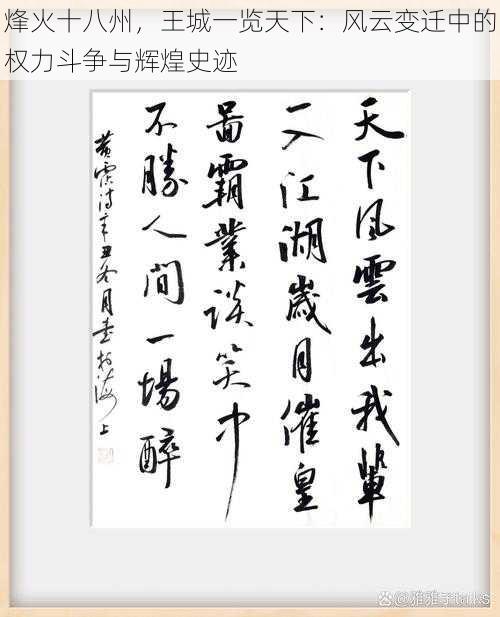 烽火十八州，王城一览天下：风云变迁中的
权力斗争与辉煌史迹
天下風雲出我輩
一入江湖歲月催皇
啚霸業談笑中
不勝人間一場醉
黄霑詩辛丑冬月書於海上
@雅雅子talks